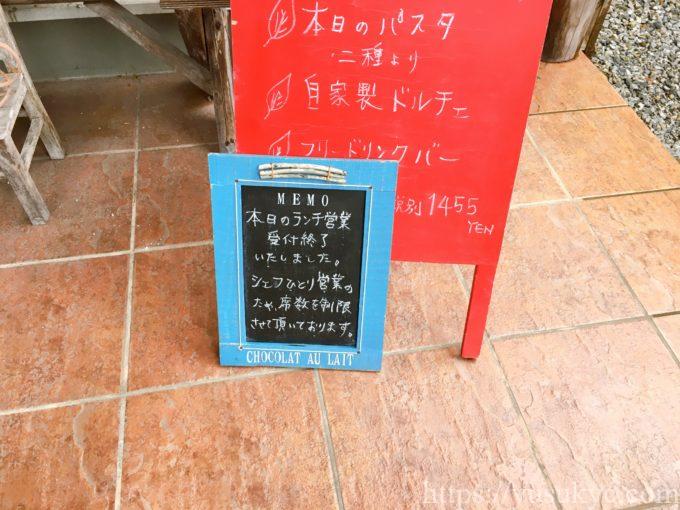 本日のパスタ
・二種より
自家製ドルチェ
フリードリンクバー
税別1455
YEN
MEMO
本日のランチ営業
受付終了
いたしました。
シェフひとり営業の
ため、席数を制限
させて頂いております。
CHOCOLAT AU LAIT
https://yusukyc.com